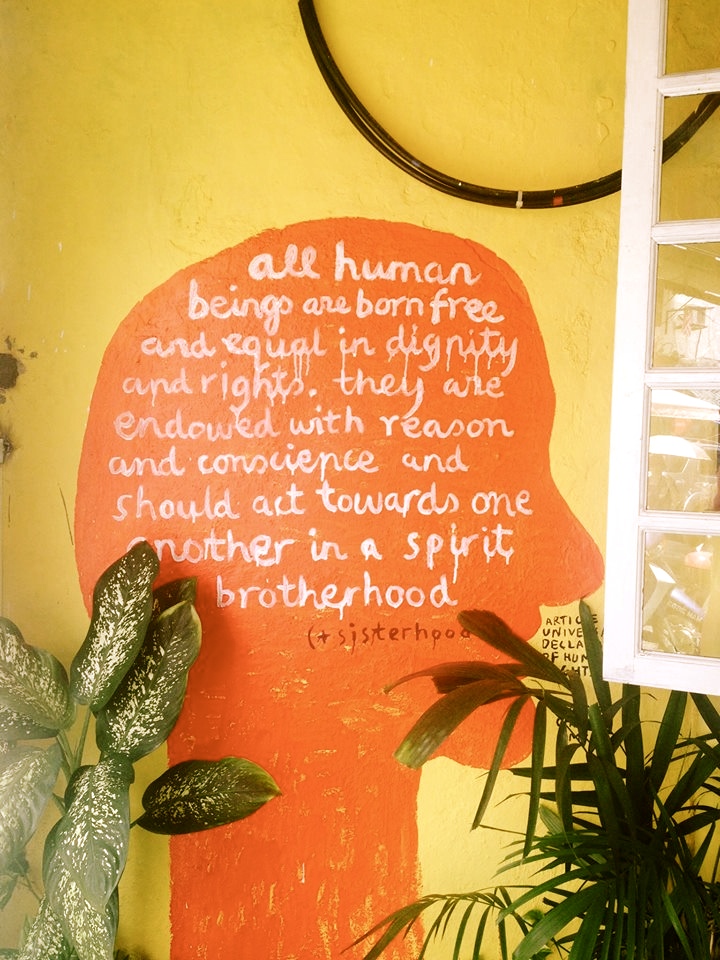 all human
beings are born free
and equal in dignity
and rights. they are
endowed with reason
and conscience and
should act towards one
another in a spirit
brotherhood
(+ sisterhood
ARTICLE
UNIVERSA
DECLA
OF HUM